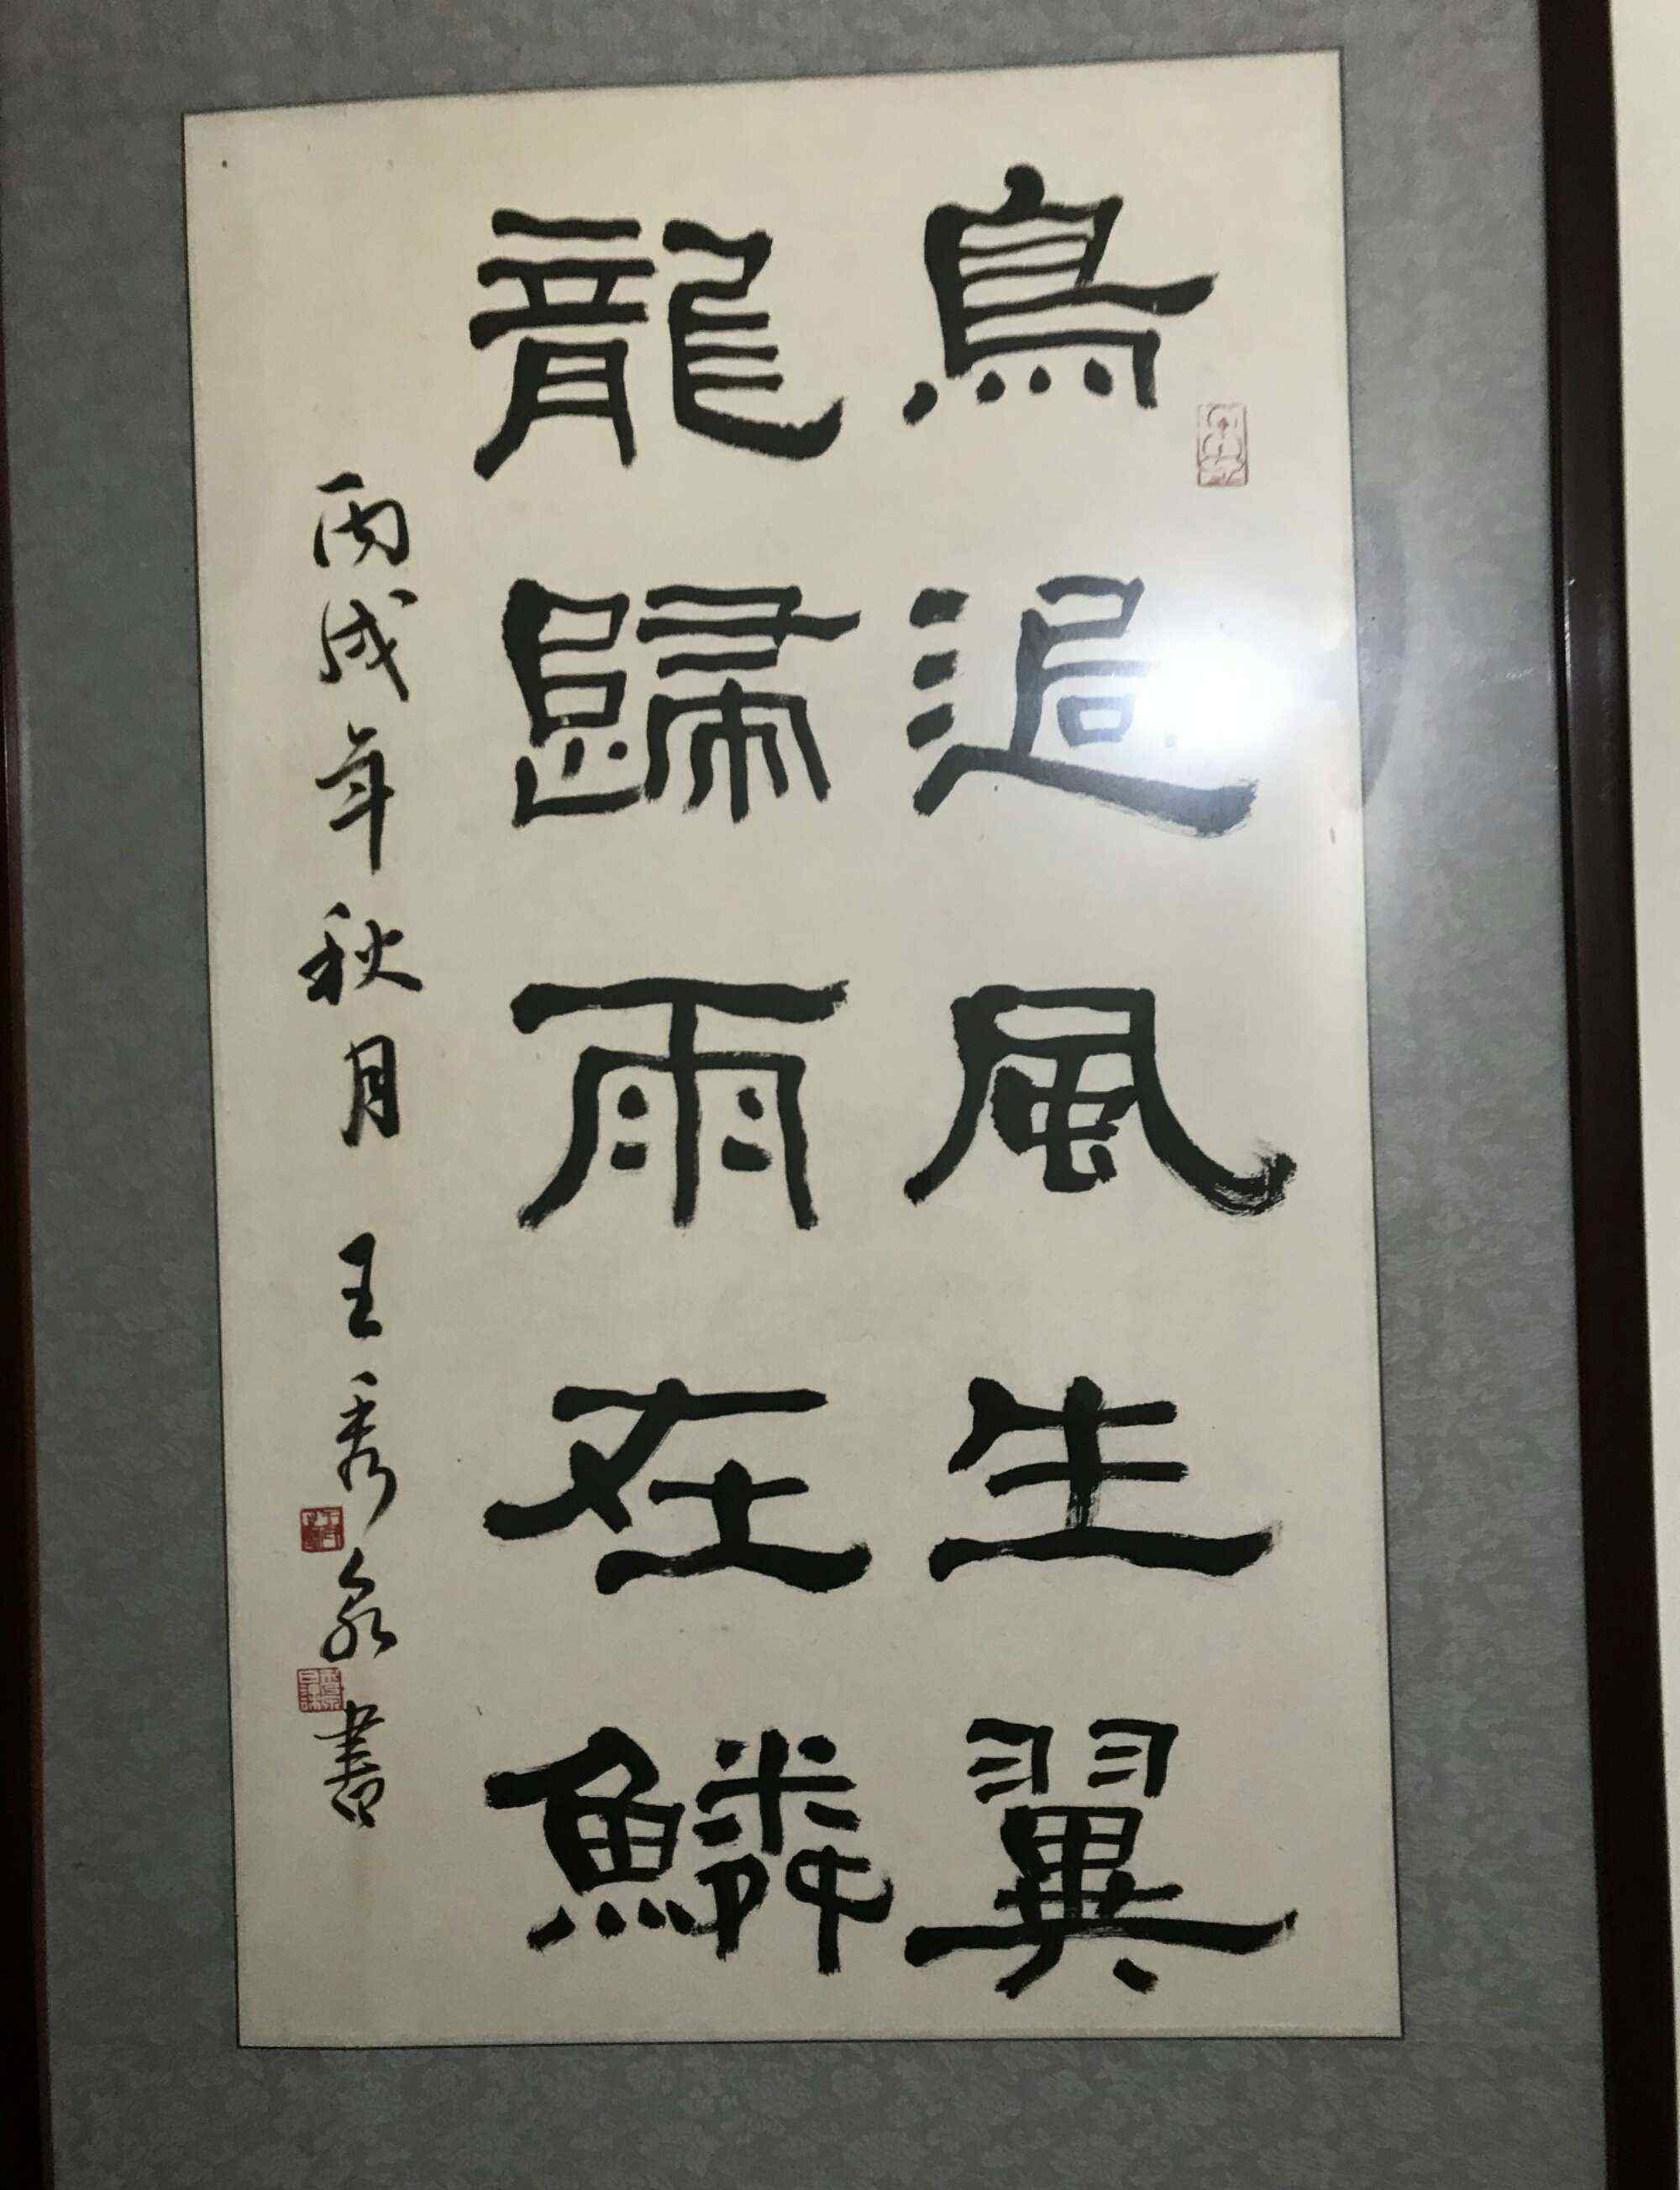 鳥過風生翼
龍歸雨在鱗
丙戌年秋月 王秀泉書